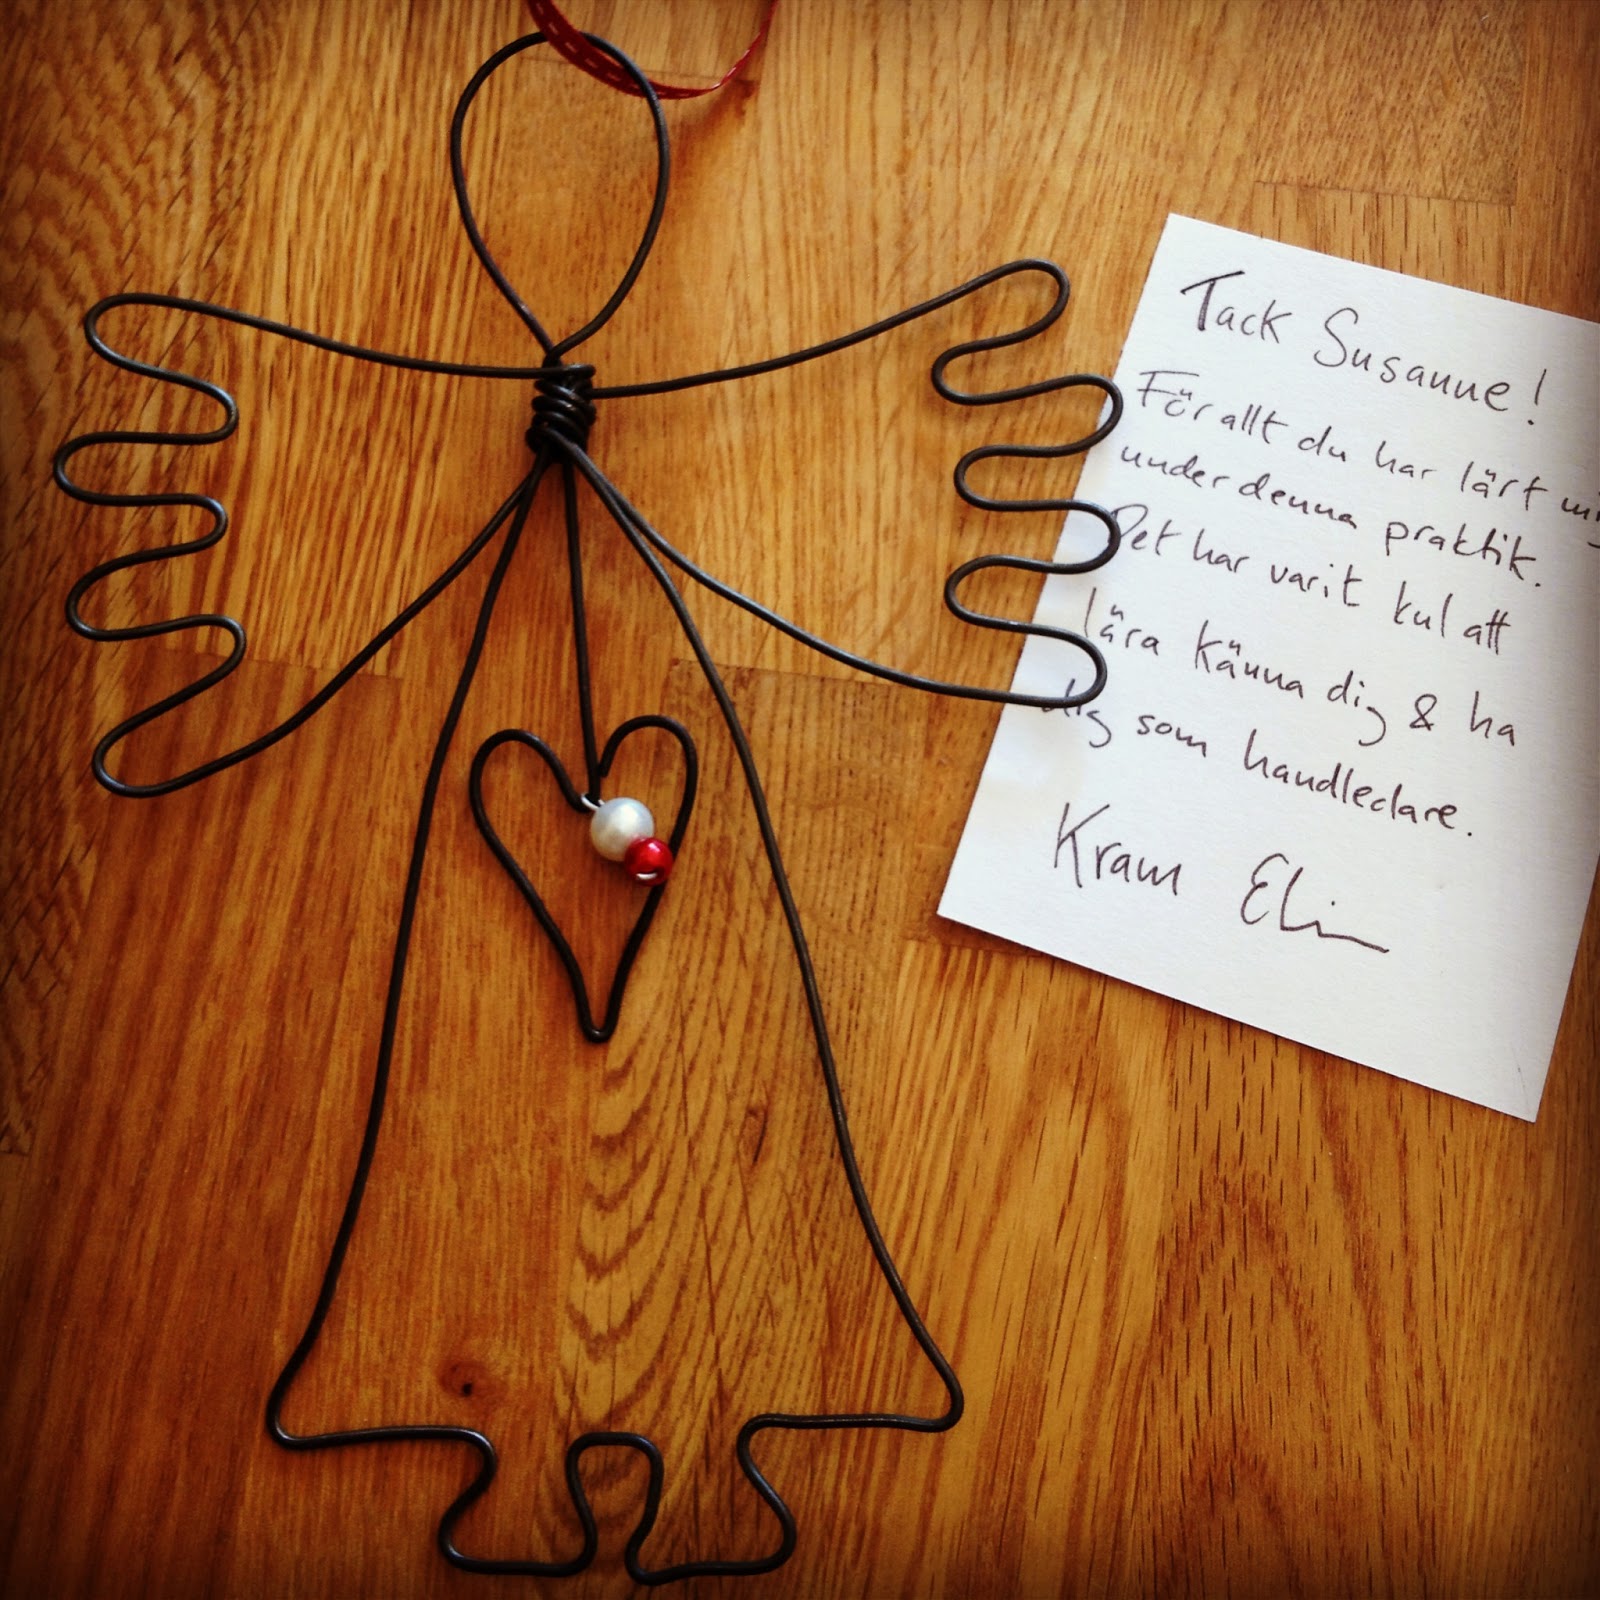 Tack Susanne!
För allt du har lärt mig
under denna praktik.
Det har varit kul att
lära känna dig & ha
dig som handledare.
Kram Elin